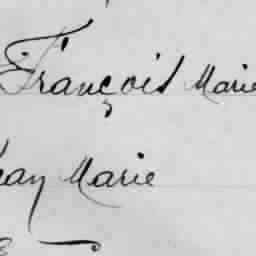 François Marie
Marie